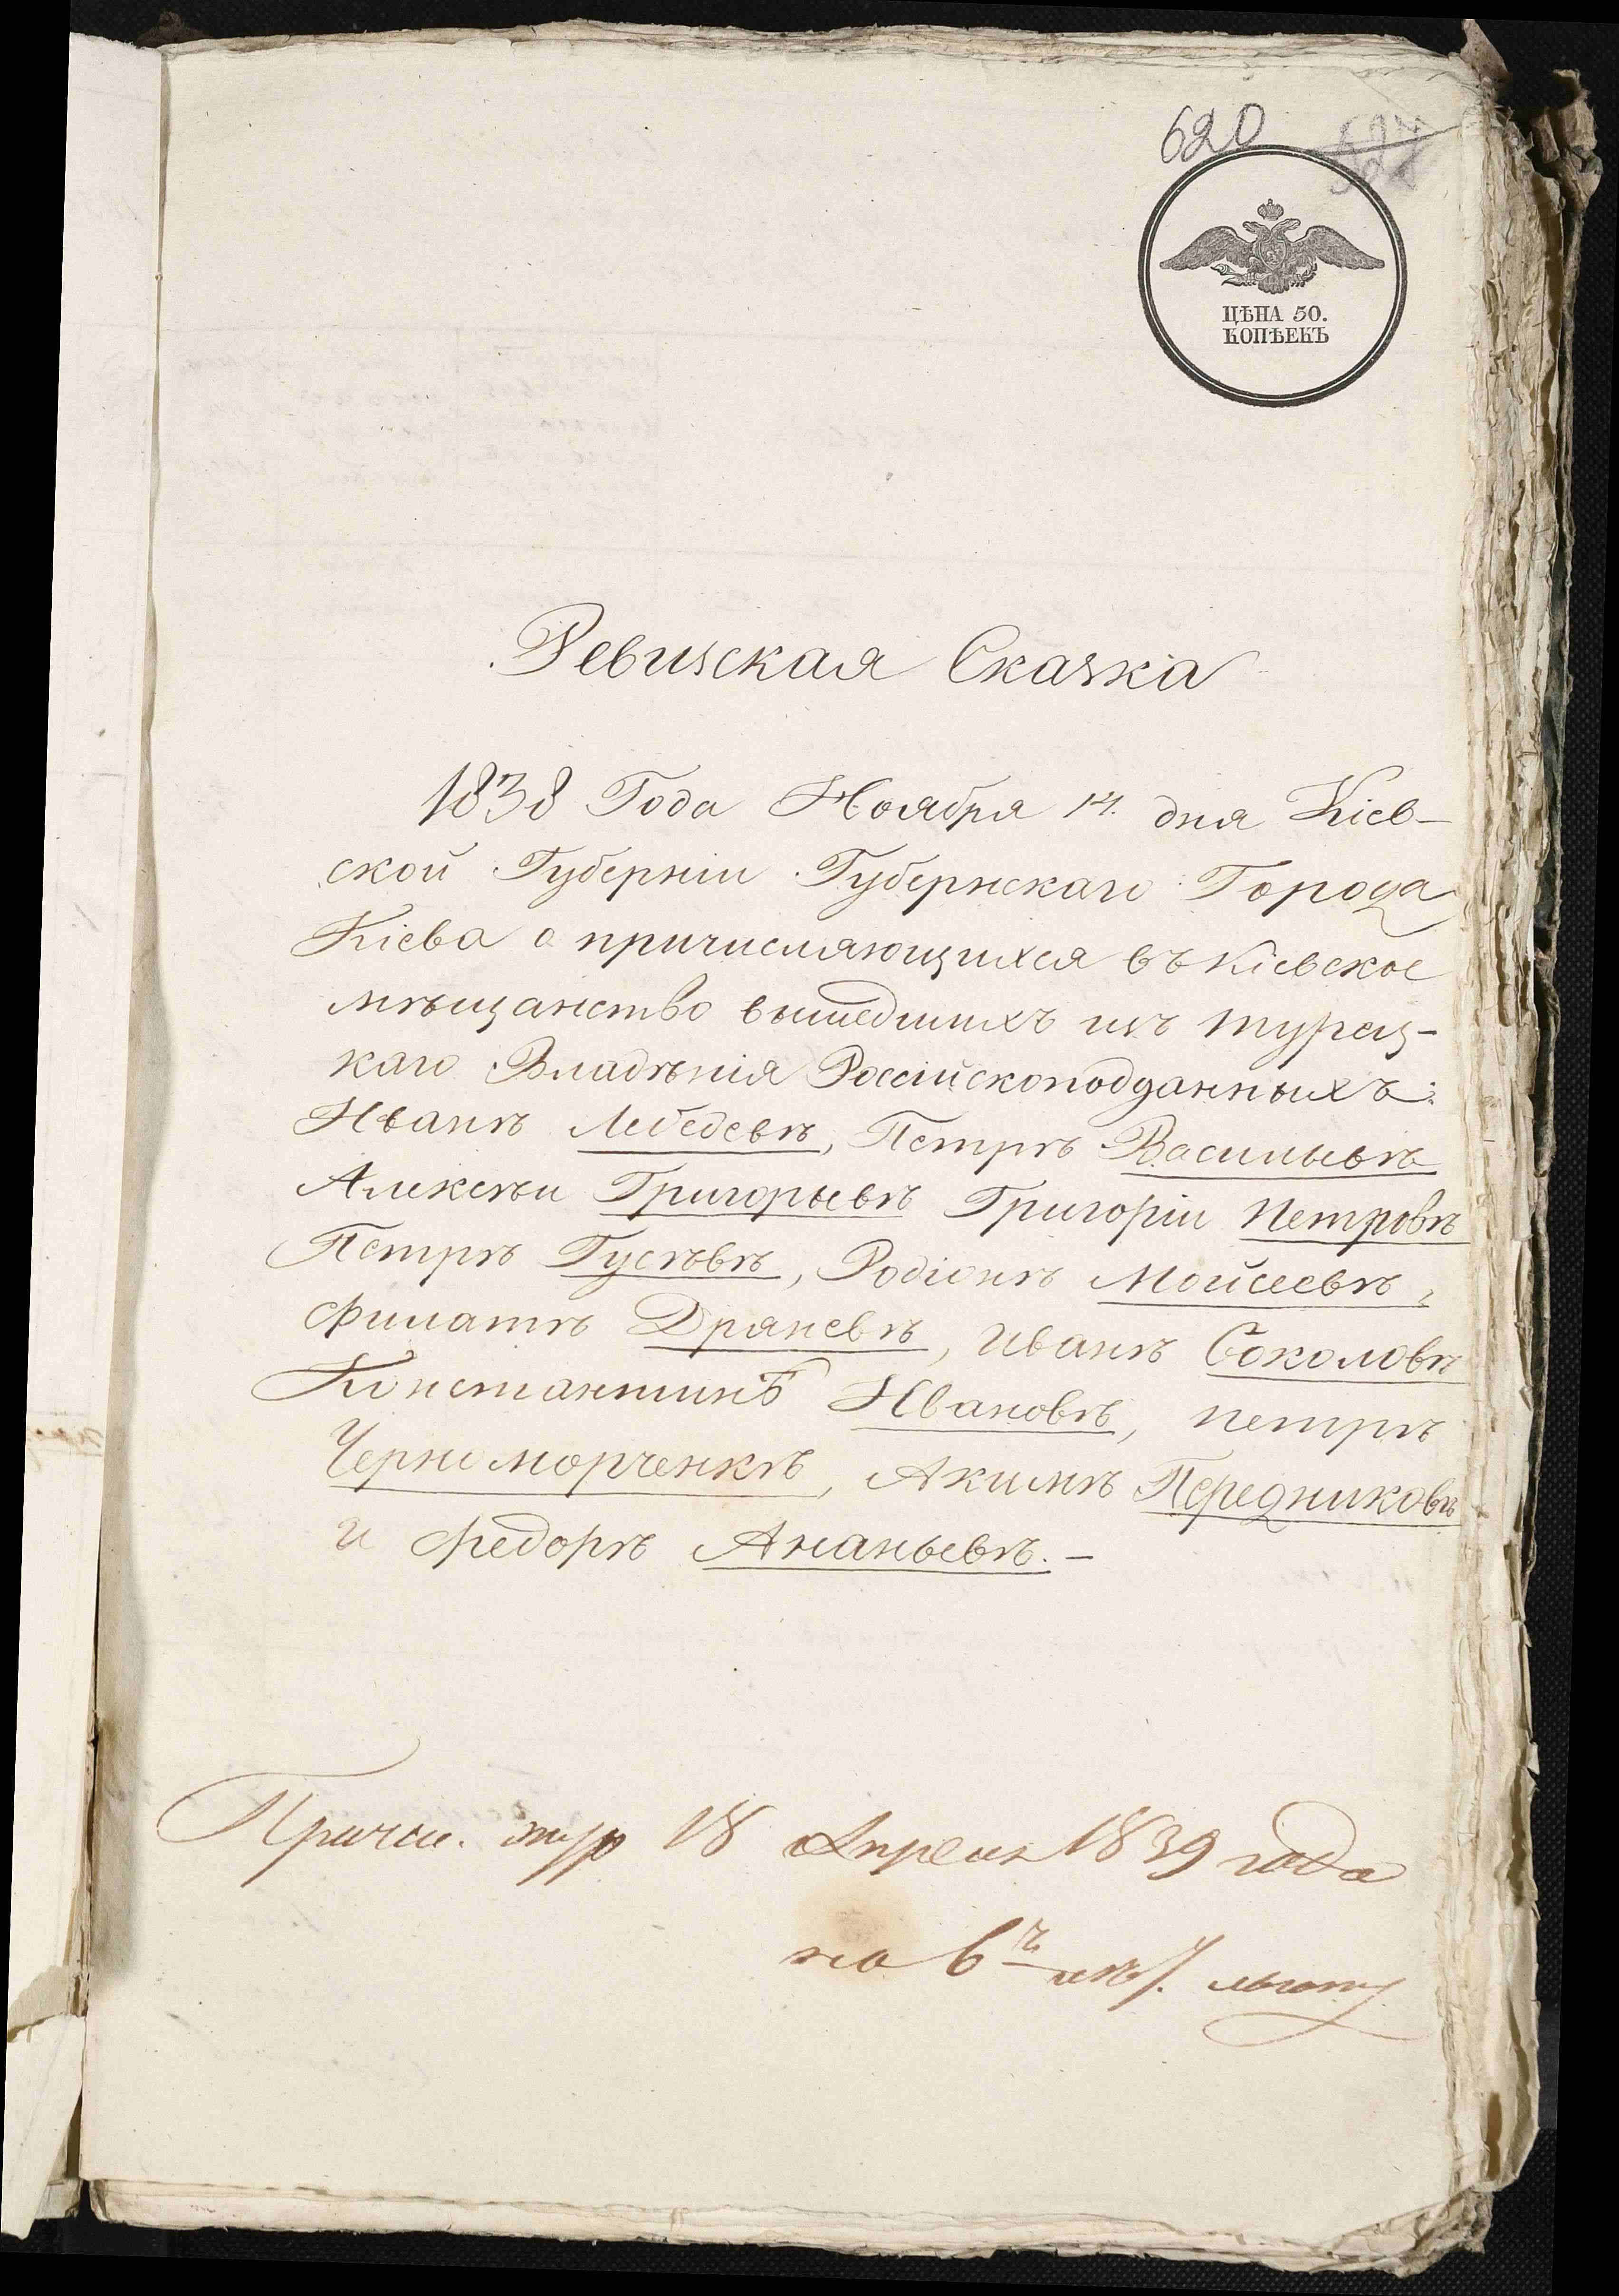 620
ЦѢНА 50.
КОПѢЕКЪ
Ревизская Сказка
1838 Года Ноября 14. дня Кіев-
ской Губерніи Губернскаго Города
Кіева о причисляющихся въ Кіевское
мѣщанство вышедшихъ изъ турец-
каго Владѣнія Россійскоподданныхъ:
Иванъ Лебедевъ, Петръ Васильевъ
Алексѣи Григорьевъ Григоріи Петровъ
Петръ Гусѣвъ, Родіонъ Мойсеевъ,
Филатъ Дряневъ, Иванъ Соколовъ
Константинъ Ивановъ, петръ
Черноморченкъ, Акимъ Передниковъ
и Федоръ Ананьевъ. –
Причи. жур 18 Апреля 1839 года
на 6ъ льготу